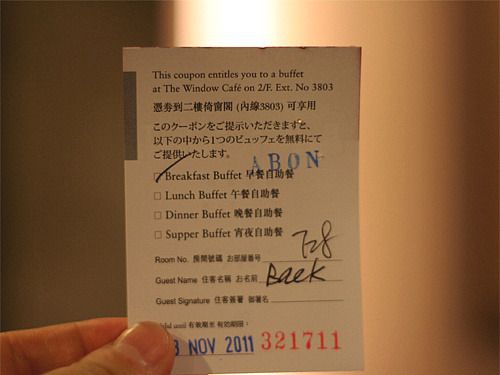 This coupon entitles you to a buffet
at The Window Café on 2/F. Ext. No 3803
憑券到二樓倚窗閣 (內線3803) 可享用
このクーポンをご提示いただきますと、
以下の中から1つのビュッフェを無料にて
ご提供いたします。
ABON
Breakfast Buffet 早餐自助餐
Lunch Buffet 午餐自助餐
Dinner Buffet 晚餐自助餐
Supper Buffet 宵夜自助餐
Room No. 房間號碼 お部屋番号 728
Guest Name 住客名稱 お名前 Baek
Guest Signature 住客簽署 御署名
Valid until 有效期至 有効期限：
3 NOV 2011 321711